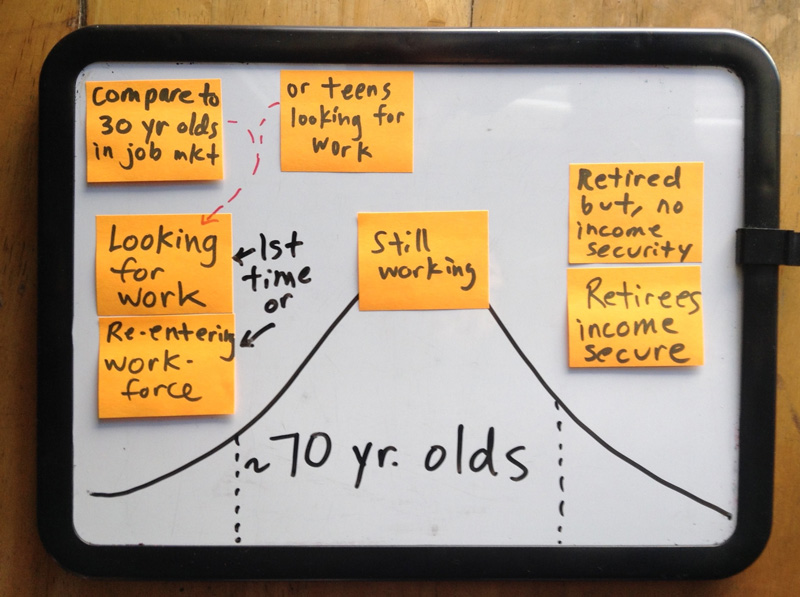 Compare to
30 yr olds
in job mkt
or teens
looking for
work
Looking
for
work
1st
time
or
Re-entering
work-
force
Still
working
Retired
but, no
income
security
Retirees
income
secure
~70 yr. olds